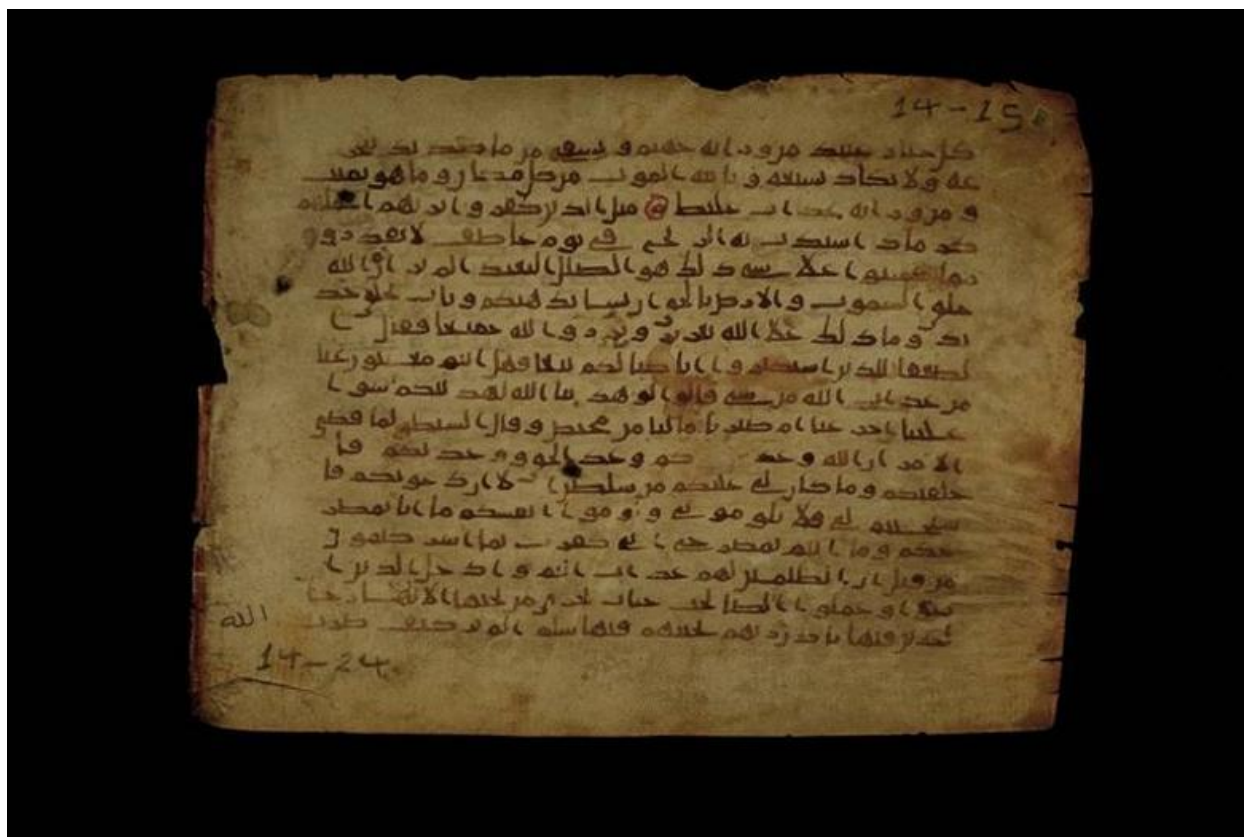 14-15
كل جبار عنيد من ورائه جهنم ويسقى من ما صديد يتجر
عه ولا يكاد يسيغه وياتيه الموت من كل مكان وما هو بميت
ومن ورائه عذاب غليظ مثل الذين كفروا بربهم اعملهم
كرماد اشتدت به الريح في يوم عاصف لا يقدرون
مما كسبوا علا شيء ذلك هو الضلل البعيد الم تر ان الله
خلق السموت والارض بالحق ان يشا يذهبكم ويات بخلق جد
يد وما ذلك علا الله بعزيز وبرزوا لله جميعا فقل ا
لضعفا للذين استكبروا انا كنا لكم تبعا فهل انتم مغنون عنا
من عذاب الله من شيء قالوا لو هدينا الله لهدينكم سوا
علينا اجزعنا ام صبرنا ما لنا من محيص وقال الشيطن لما قضي
الامر ان الله وعدكم وعد الحق ووعدتكم فا
خلفتكم وما كان لي عليكم من سلطن الا ان دعوتكم فا
ستجبتم لي فلا تلوموني ولوموا انفسكم ما انا بمصر
خكم وما انتم بمصرخي اني كفرت بما اشركتمون
من قبل ان الظلمين لهم عذاب اليم وادخل الذين ا
منوا وعملوا الصلحت جنات تجري من تحتها الانهار خا
لدين فيها باذن ربهم تحيتهم فيها سلم الم تر كيف ضرب
الله
14-24.